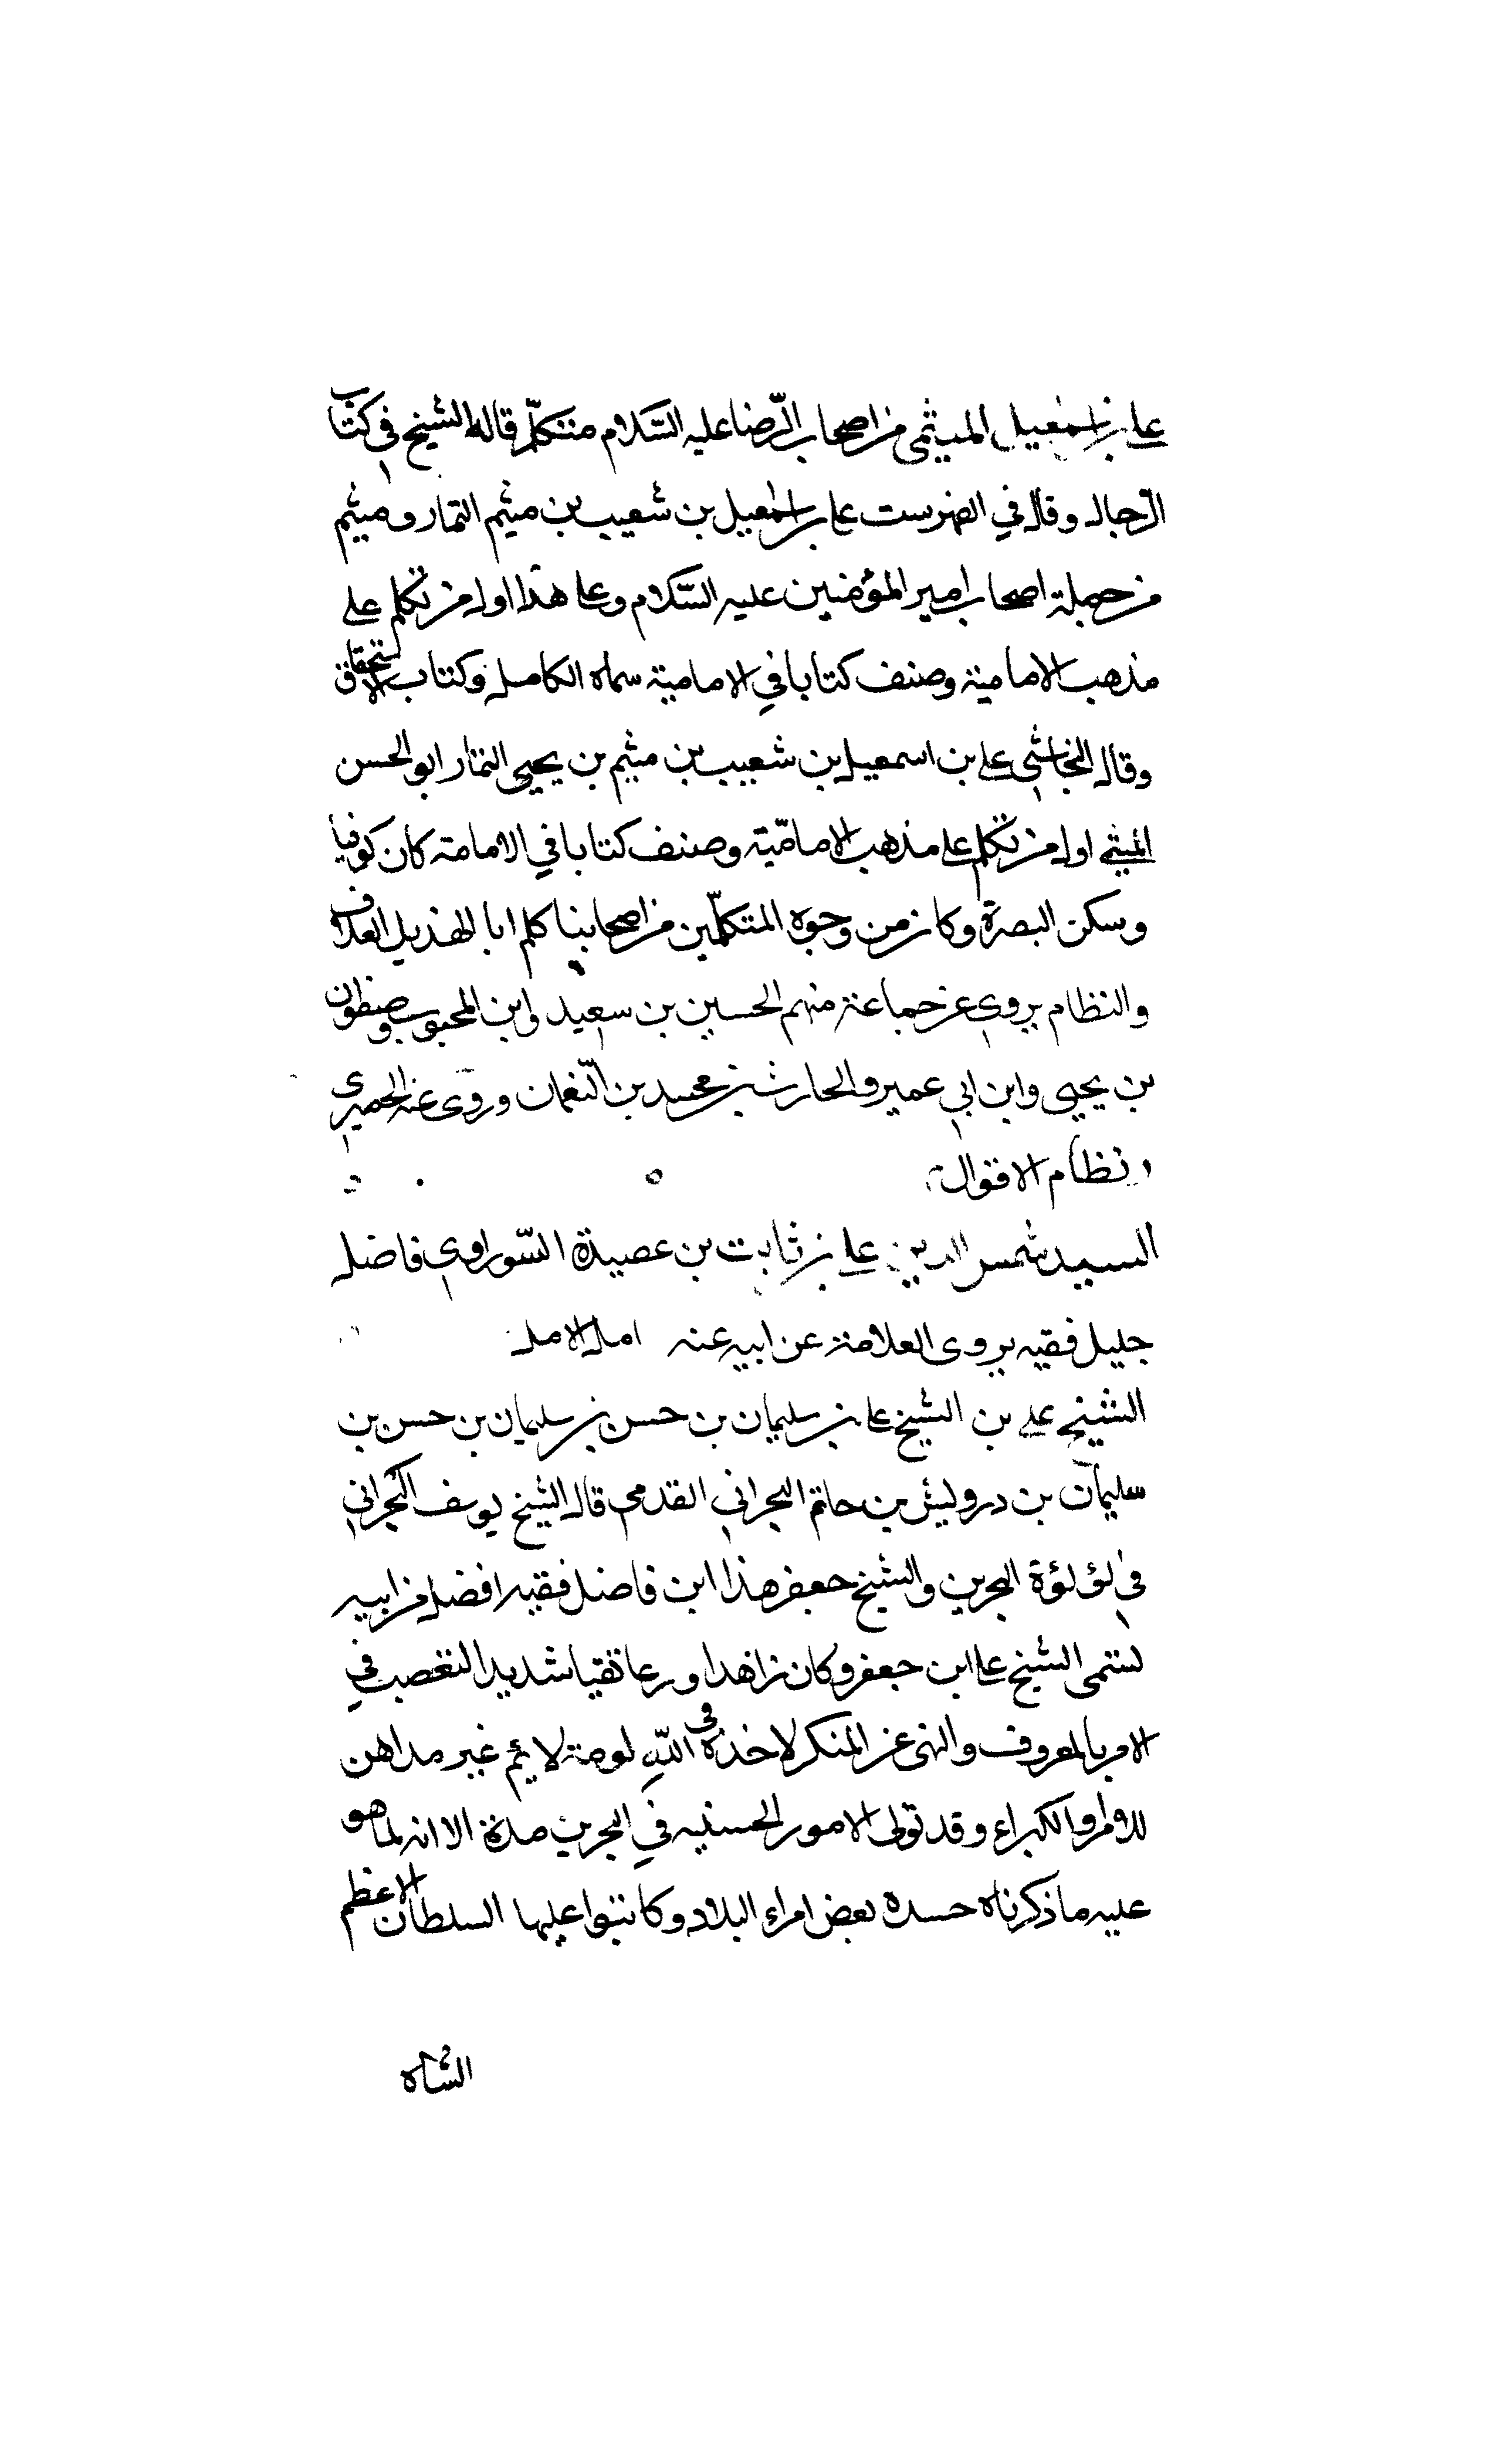 علي بن اسمعيل الميثمي من اصحاب الرّضا عليه السّلام متكلّم قاله الشيخ في كتاب
الرّجال وقال في الفهرست علي بن اسمعيل بن شعيب بن ميثم التمار وميثم
من جملة اصحاب امير المؤمنين عليه السّلام وعلي هذا اول من تكلم على
مذهب الامامية وصنف كتابا في الامامية سماه الكامل وكتاب الاستحقاق
وقال النجاشي علي بن اسمعيل بن شعيب بن ميثم بن يحيى التمار ابو الحسن
الميثمي اول من تكلم على مذهب الاماميّة وصنف كتابا في الامامة كان كوفيا
وسكن البصرة وكان من وجوه المتكلّمين من اصحابنا كلم ابا الهذيل العلاف
والنظام يروي عن جماعة منهم الحسين بن سعيد وابن المحبوب وصفوان
بن يحيى وابن ابي عمير والحارث بن محمد بن النّعمان وروى عنه الحميري
نظام الاقوال
السيد شمس الدين علي بن ثابت بن عصيدة السّوراوي فاضل
جليل فقيه يروى العلامة عن ابيه عنه امل الامل
الشيخ علي بن الشيخ علي بن سليمان بن حسن بن سليمان بن حسن بن
سليمان بن درويش بن حاتم البحراني القدمي قال الشيخ يوسف البحراني
في لؤلؤة البحرين والشيخ جعفر هذا ابن فاضل فقيه افضل من ابيه
يسمى الشيخ علي ابن جعفر وكان زاهدا ورعا تقيا شديد التعصب في
الامر بالمعروف والنهى عن المنكر لا خذه في اللّه لومة لائم غير مداهن
للامراء والكبراء وقد تولى الامور الحسنيه في البحرين مدة الا انه لما هو
عليه ما ذكرناه حسده بعض امراء البلاد وكاتبوا عليها السلطان الاعظم
الشاه